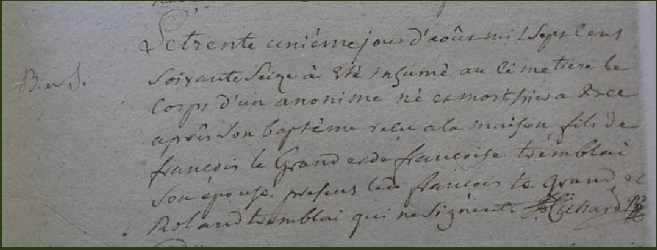 Le trente uniéme jour d'aôus mil Sept Cens
B. et S.
Soixante Seize à été inhumé au Cimetiere le
Corps d'un anonime né et mort
après Son baptéme reçu a la maison fils de
francois le Grand et de francoise tremblai
Son épouse presens led francois le Grand et
Roland tremblai qui ne Signent. Richard